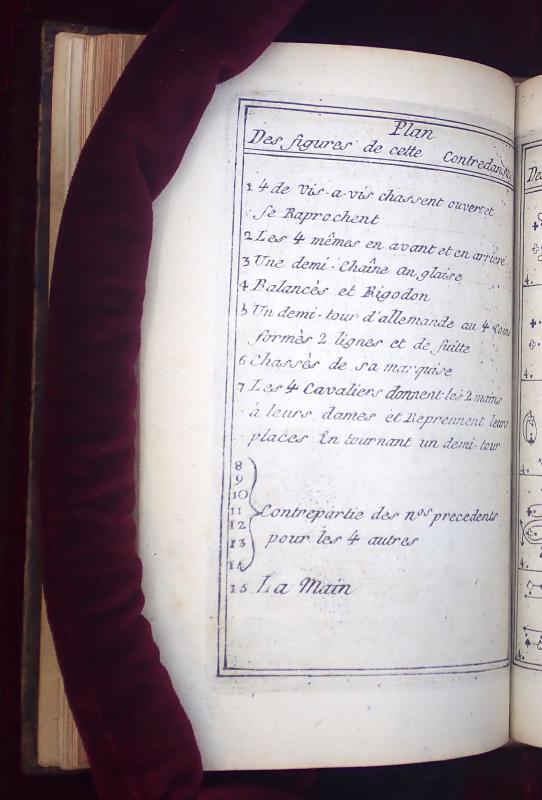 Plan
Des figures de cette Contredanse
1 4 de vis-a-vis chassent ouvert et
se Raprochent
2 Les 4 mêmes en avant et en arriere
3 Une demi-Chaîne anglaise
4 Balancés et Rigodon
5 Un demi-tour d'allemande au 4 Coins
formès 2 lignes et de suitte
6 Chassès de sa marquise
7 Les 4 Cavaliers donnent les 2 mains
à leurs dames et Reprennent leurs
places En tournant un demi-tour
8
9
10
11 Contrepartie des nos precedents
12
13 pour les 4 autres
14
15 La Main
De
4.
4.
4.
4.
4.